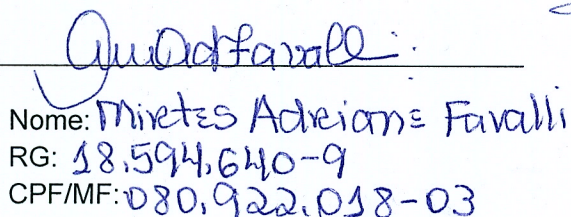 Nome: Miretes Adreiane Favalli
RG: 18.594.640-9
CPF/MF: 080.922.018-03